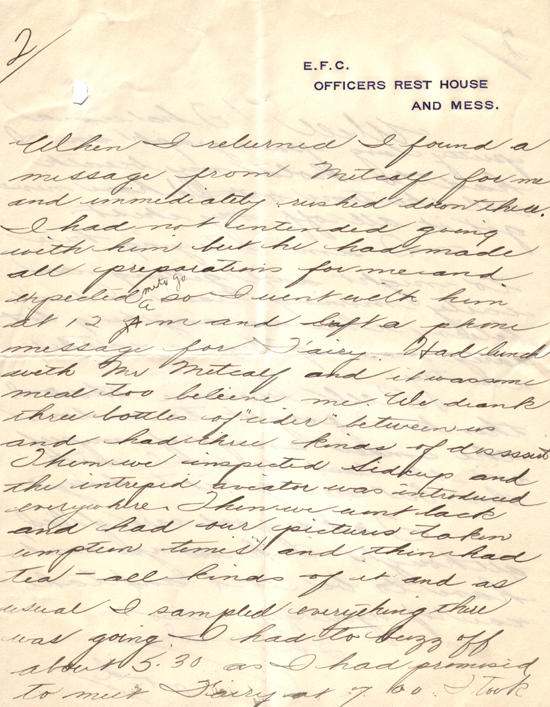 2/
E.F.C.
OFFICERS REST HOUSE
AND MESS.
When I returned I found a
message from Metcalf for me
and immediately rushed down there.
I had not intended going
with him but he had made
all preparations for me and
expected me to go so I went with him
at 12 Am and left a phone
message for Fairy. Had lunch
with Mr Metcalf and it was some
meal too beleive me. We drank
three bottles of "cider" between us
and had three kinds of dessert
Then we inspected Sidcup and
the intrepid aviator was introduced
everywhere. Then we went back
and had our pictures taken
umpteen times and then had
tea - all kinds of it and as
usual I sampled everything there
was going. I had to buzz off
about 5.30 as I had promised
to meet Fairy at 7.00. I took